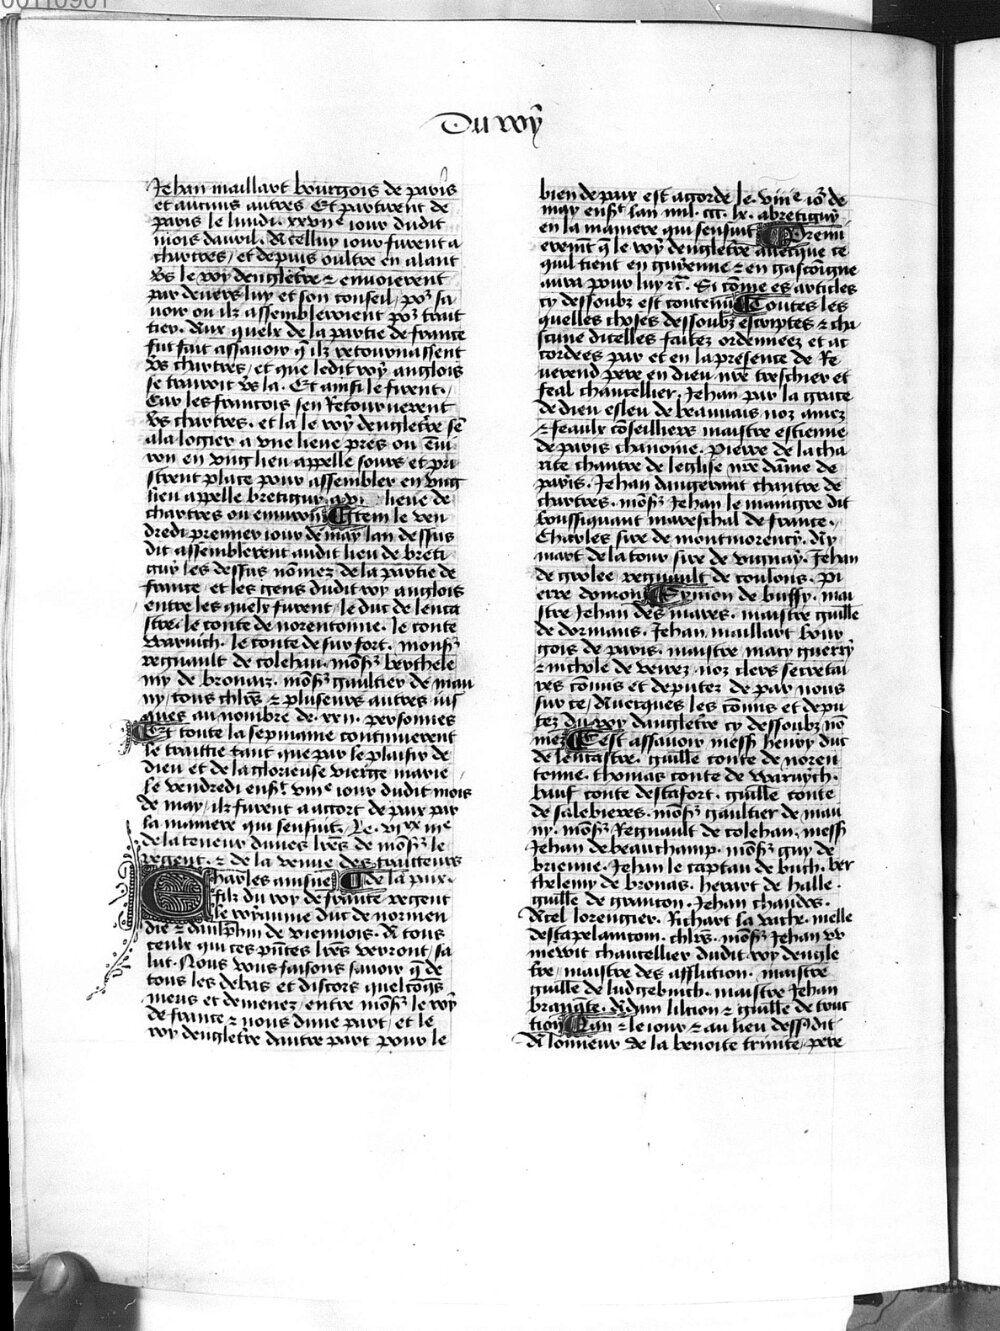 Du roy
Jehan maillart bourgois de paris
et aucuns autres Et partirent de
paris le lundi .xxvije iour dudit
mois dauril. A celluy iour furent a
chartres / et depuis oultre en alant
vs le roy dengletre ⁊ enuoierent
par deuers luy et son conseil / poz sa
uoir ou ilz assembleroient poz trait
tier. Aux quelx de la partie de france
fut fait assauoir q̄ ilz retournassent
vs chartres / et que ledit roy anglois
se trairoit vs la. Et ainsi le firent.
Car les francois sen Retournerent
vs chartres. et la le roy dengletre sē
ala logier a vne lieue pres ou eũi
ron en vng lieu appelle sours et pri
strent place pour assembler en vng
lieu appelle bretiguy a lieue de
chartres ou enuiron Item le ven
dredi premier iour de may lan dessus
dit assemblerent audit lieu de breti
guy les dessus nōmez de la partie de
france / et les gens dudit roy anglois
entre les quelx furent / le duc de lenca
stre. le conte de norentonne. le conte
waruich. le conte de surfort. monsz
regnault de colehan. mōsz berthele
my de bronaz. mōsz gaultier de mau
ny / tous chlrs ⁊ plusieurs autres iusques
ques au nombre de .xxij. personnes
Et toute la sepmaine continuerent
le traittie tant que par le plaisir de
dieu et de la glorieuse vierge marie
le vendredi ensꝭ viije iour dudit mois
de may / ilz furent a accort de paix par
la maniere qui sensuit / Le .vixx iije
de la teneur dunes lrēs de mōsz le
regent. ⁊ de la venue des traicteurs
Charles ainsne de la paix.
filz du roy de france regent
le royaume duc de normen
die ⁊ daulphin de viennois. A tous
ceulx qui ces pñtes lrēs verront / sa
lut. Nous vous faisons sauoir q̄ de
tous les debas et discors quelcōqs
meus et demenez / entre mōsz le roy
de france ⁊ nous dune part / et le
roy dengletre dautre part pour le
bien de paix est acorde le. viije io² de
may ensꝭ lan mil. ccc. lx. a bretiguy
en la maniere qui sensuit Premi
eremt q̄ le roy dengletre auecque ce
quil tient en guyenne ⁊ en gascoigne
aura pour luy Si cōme es articles
cy dessoubz est contenu Toutes les
quelles choses dessoubz escriptes ⁊ cha
scune dicelles faitez ordenneez et ac
cordees par et en la presence de Re
uerend pere en dieu nrē treschier et
feal chancellier. Jehan par la grace
de dieu esleu de beauuais noz amez
⁊ feaulx cōseilliers maistre estienne
de paris chanoine. Pierre de la cha
rite chantre de leglise nrē dāme de
paris. Jehan daugerant chantre de
chartres. mōsz Jehan le maingre dit
boussiquant mareschal de france.
Charles sire de montmorency. Ay
mart de la tour sire de vignay. Jehan
de grolee regniault de coulons. Pi
erre domon Symon de bussy. mai
stre Jehan des mares. maistre guille
de dormans. Jehan maillart bour
gois de paris. maistre macy guerry
⁊ nichole de veirez. noz clers secretai
res cōmis et deputez de par nous
sur ce / Auecques les cōmis et depu
tez du roy dangletre cy dessoubz nō
mez Cest assauoir messꝭ henry duc
de lencastre. guille conte de noren
tonne. thomas conte de waruych.
Rauf conte destafort. guille conte
de salebieres. mōsz gaultier de mau
ny. mōsz Regnault de colehan. messꝭ
Jehan de beauchamp. mōsz guy de
brienne. Jehan le captau de buch. ber
thelemy de bronas. henart de halle.
guille de granton. Jehan chandos.
Nel lorengier. Richart la vache. mille
destapelantom. chlrs. mōsz Jehan vv
mewit chancellier dudit roy dengle
tre / maistre des affliction. maistre
guille de ludgebuich. maistre Jehan
branāte. Adam liltion ⁊ guille de touc
tion Lan ⁊ le iour ⁊ au lieu dessꝰdit
A lonneur de la benoite trinite / pere